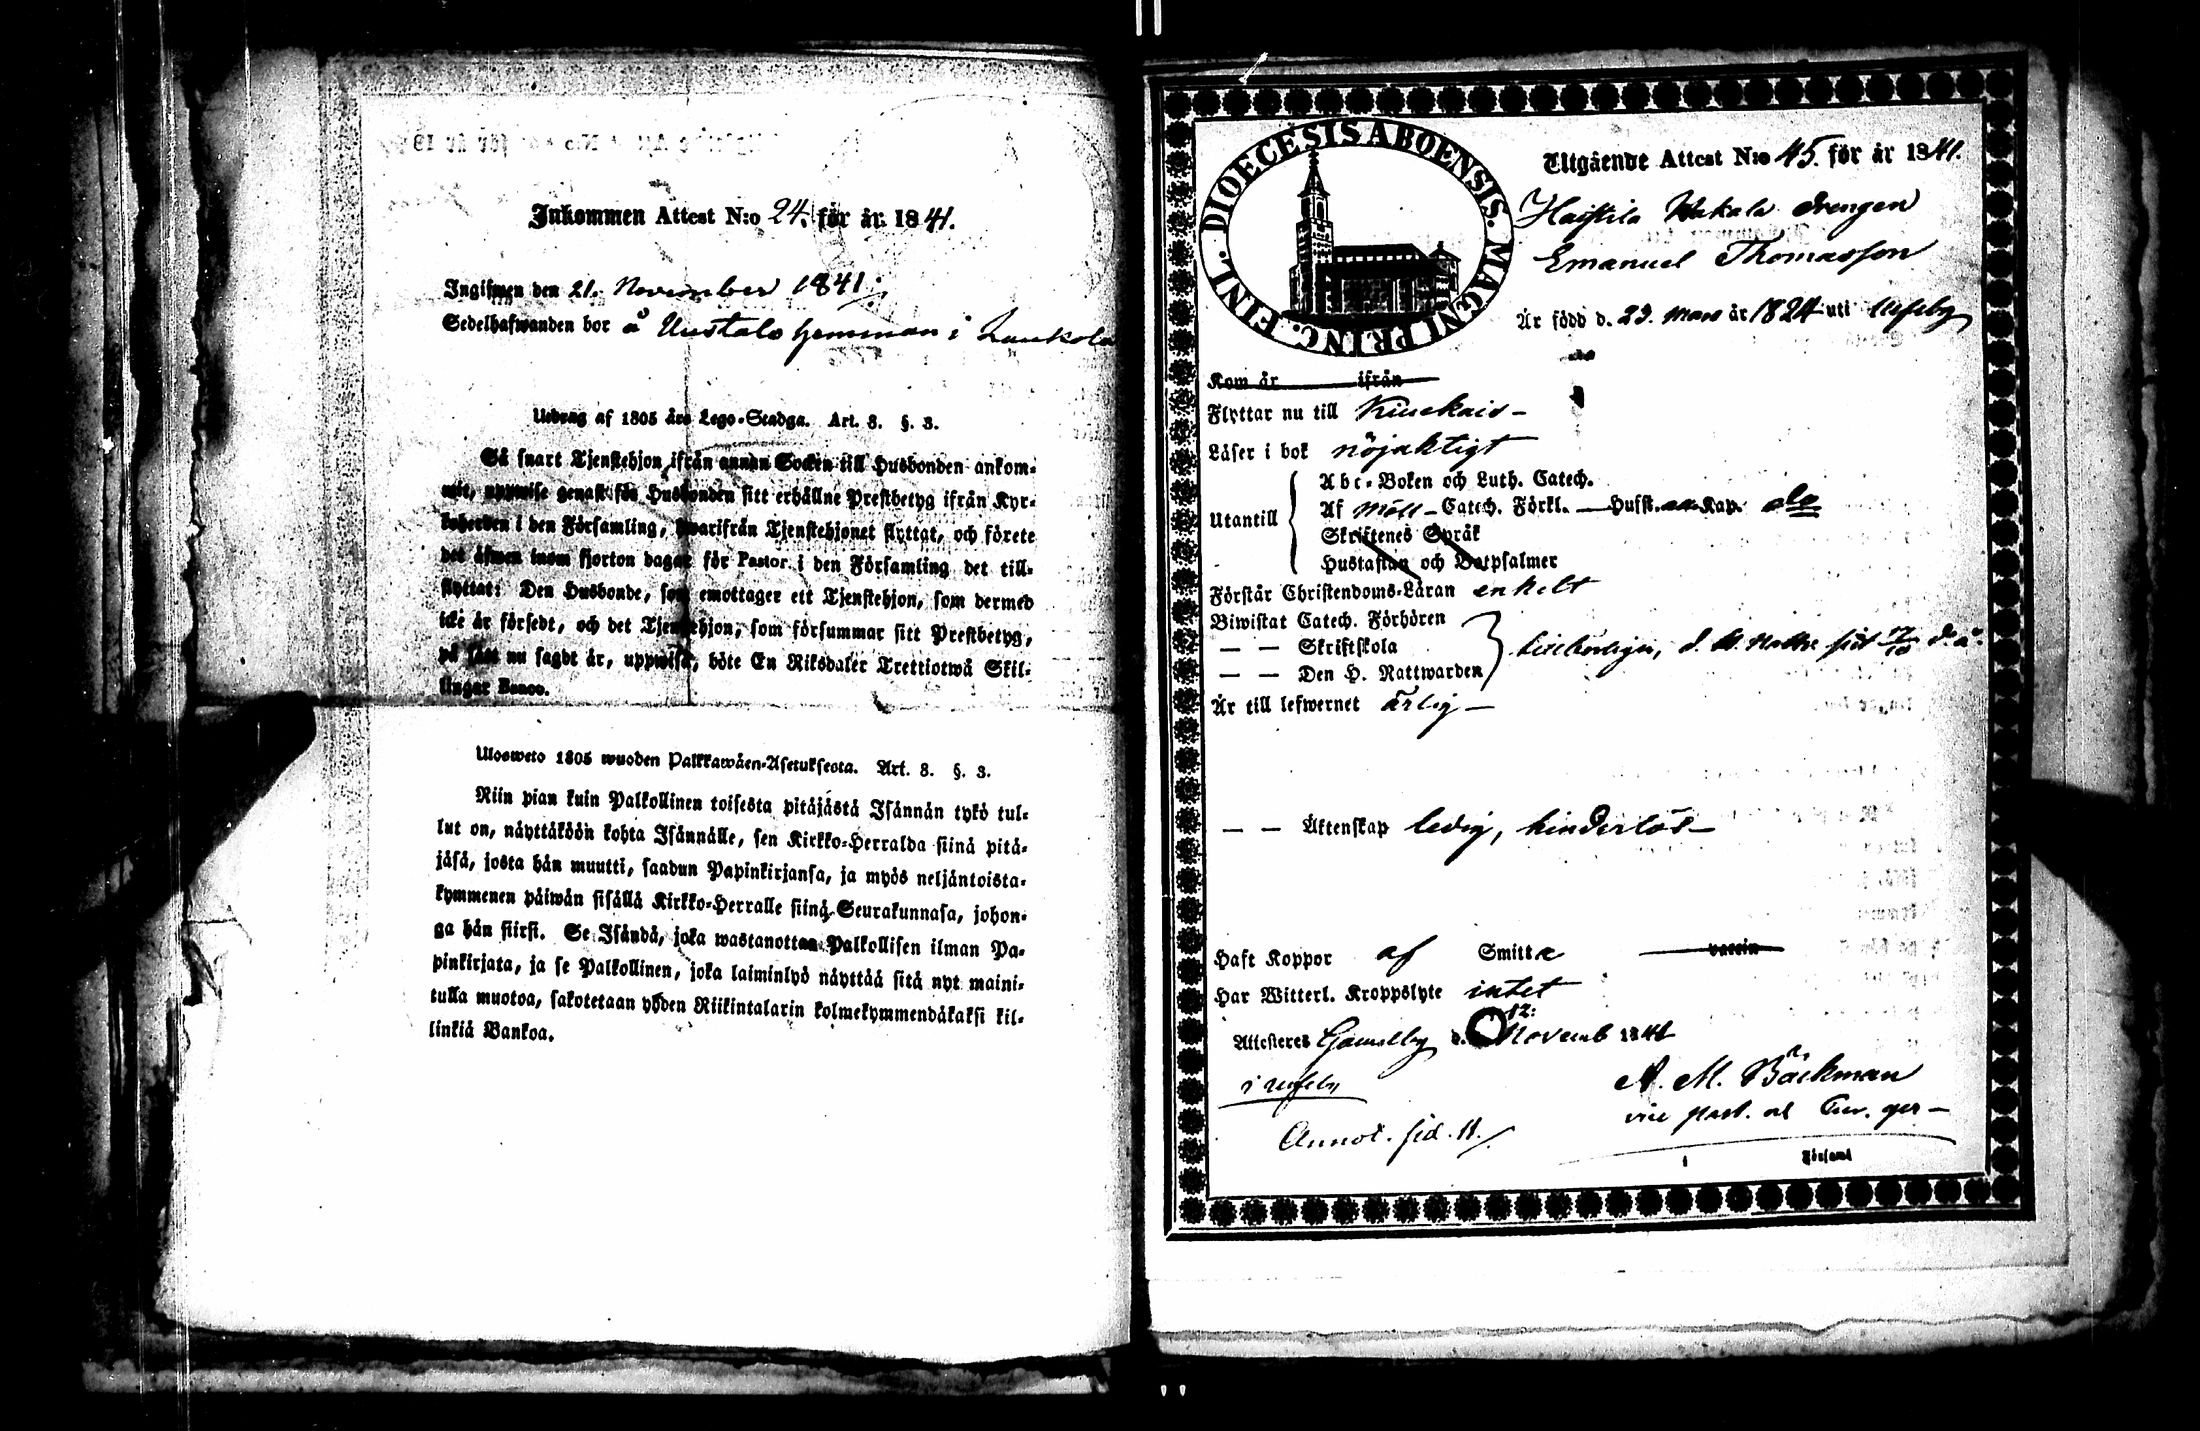 Inkommen Attest N:o 24. för år 1841.
Ingifwen den 21. November 1841.
Sedelhafwanden bor å Uustalo hemman i Laukola
Utdrag af 1805 års Lego-Stadga. Art. 8. §. 3.
Så snart Tjenstehjon ifrån annan Socken till Husbonden ankom-
mit, uppwise genast för Husbonden sitt erhållne Prestbetyg ifrån Kyr-
koherden i den Församling, hwarifrån Tjenstehjonet flyttat, och förete
det äfwen inom fjorton dagar för Pastor i den Församling det till-
flyttat: Den Husbonde, som emottager ett Tjenstehjon, som dermed
icke är försedt, och det Tjenstehjon, som försummar sitt Prestbetyg,
på sätt nu sagdt är, uppwisa, böte En Riksdaler Trettiotwå Skil-
lingar Banco.
Ulosweto 1805 wuoden Palkkawäen-Asetuksesta. Art. 8. §. 3.
Niin pian kuin Palkollinen toisesta pitäjästä Isännän tykö tul-
lut on, näyttäköön kohta Isännälle, sen Kirkko-Herralda siinä pitä-
jäsä, josta hän muutti, saadun Papinkirjansa, ja myös neljäntoista-
kymmenen päiwän sisällä Kirkko-Herralle siinä Seurakunnasa, johon-
ga hän siirsi. Se Isändä, joka wastanottaa Palkollisen ilman Pa-
pinkirjata, ja se Palkollinen, joka laiminlyö näyttää sitä nyt maini-
tulla muotoa, sakotetaan yhden Riikintalarin kolmekymmendäkaksi kil-
linkiä Bankoa.
DIOECESIS ABOENSIS. MAGNI PRINC. FINL.
Utgående Attest N:o 45. för år 1841.
Haistila Wakala Drengen
Emanuel Thomasson
Är född d. 23. Mars år 1824 uti Ulfsby
Kom år ifrån
Flyttar nu till Kiuekais
Läser i bok nöjaktigt
Utantill
Abc-Boken och Luth. Catech.
Af Möll Catech. Förkl. Hufst. Kap.
Skriftenes Språk
Hustaflan och Botpsalmer
Förstår Christendoms-Läran enkelt
Biwistat Catech. Förhören
— — Skriftskola
— — Den H. Nattwarden
Är till lefwernet ärlig
— — Äktenskap ledig, hinderlös
Haft Koppor af Smitta vaccin
Har Witterl. Kroppslyte intet
Attesteres Gammelby d. 12: Novemb 1841
i Ulfsby
A. M. Bäckman
vice past.
Annot. sid. 11.
i Församl